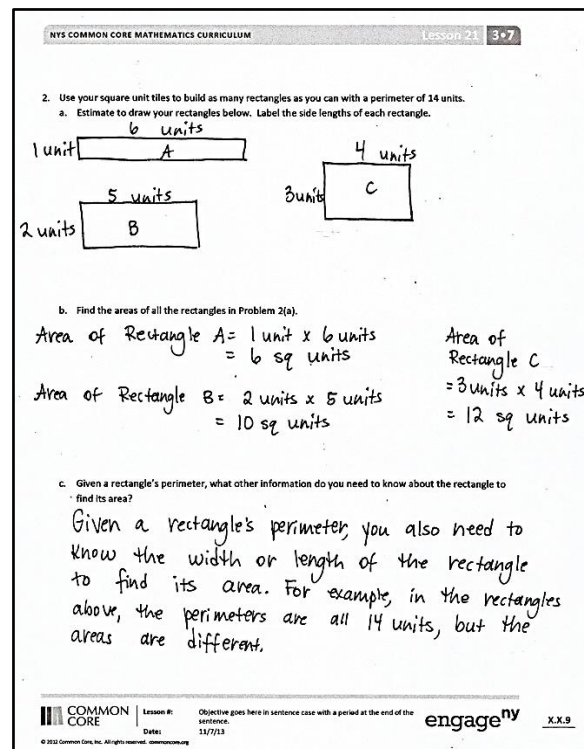 NYS COMMON CORE MATHEMATICS CURRICULUM
Lesson 21
3•7
2. Use your square unit tiles to build as many rectangles as you can with a perimeter of 14 units.
a. Estimate to draw your rectangles below. Label the side lengths of each rectangle.
6 units
1 unit
A
4 units
3 units
C
5 units
2 units
B
b. Find the areas of all the rectangles in Problem 2(a).
Area of Rectangle A = 1 unit x 6 units
= 6 sq units
Area of Rectangle B = 2 units x 5 units
= 10 sq units
Area of
Rectangle C
= 3 units x 4 units
= 12 sq units
c. Given a rectangle's perimeter, what other information do you need to know about the rectangle to
find its area?
Given a rectangle's perimeter, you also need to
know the width or length of the rectangle
to find its area. For example, in the rectangles
above, the perimeters are all 14 units, but the
areas are different.
COMMON
CORE
Lesson #:
Date:
Objective goes here in sentence case with a period at the end of the
sentence.
11/7/13
engageny
X.X.9
© 2012 Common Core, Inc. All rights reserved. commoncore.org